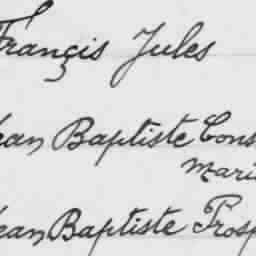 Françis Jules
Jean Baptiste Cons
Mari
Jean Baptiste Prosp